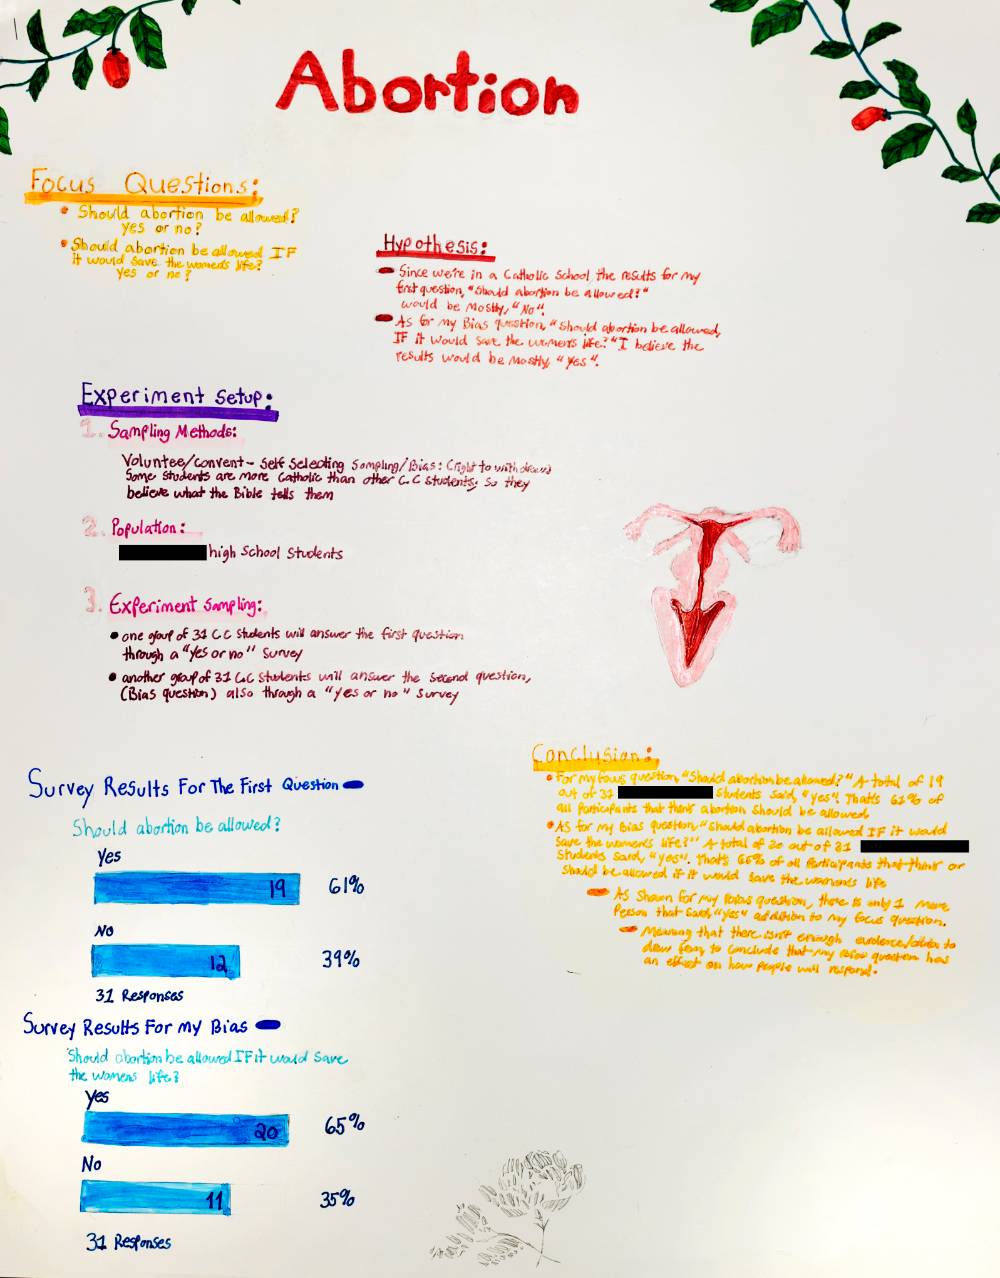 Abortion
Focus Questions:
• Should abortion be allowed?
yes or no?
• Should abortion be allowed IF
it would save the womens life?
yes or no?
Hypothesis:
Since we're in a Catholic School, the results for my
first question, "Should abortion be allowed?"
would be Mostly, "No".
As for my Bias question, "Should abortion be allowed,
IF it would save the womens life?" I believe the
results would be Mostly, "Yes".
Experiment Setup:
1. Sampling Methods:
Self Selecting Sampling/Bias: (right to
Some students are more Catholic than other C.C students, so they
believe what the Bible tells them
2. Population:
high School Students
3. Experiment Sampling:
• one group of 31 C C Students will answer the first question
through a "yes or no" survey
• another group of 31 C.C Students will answer the second question,
(Bias question) also through a "yes or no" survey
Survey Results For The First Question
Should abortion be allowed?
Yes
19 61%
No
12 39%
31 Responses
Survey Results For my Bias
Should abortion be allowed IF it would save
the womens life?
Yes
20 65%
No
11 35%
31 Responses
Conclusion:
• For my focus question, "Should abortion be allowed?" A total of 19
out of 31 Students said, "yes". That's 61% of
all Participants that think abortion should be allowed.
• As for my Bias question, "Should abortion be allowed IF it would
save the womens life?" A total of 20 out of 31
Students said, "yes". That's of all Participants that think or
should be allowed if it would save the womans life
As Shown for my question, there is only 1 more
Person that said, "yes" addition to my focus question.
Meaning that there isn't enough to
draw to conclude that my question has
an effect on how people will respond.